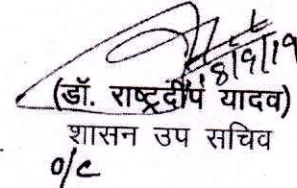 18/9/19
(डॉ. राष्ट्रदीप यादव)
शासन उप सचिव
o/c